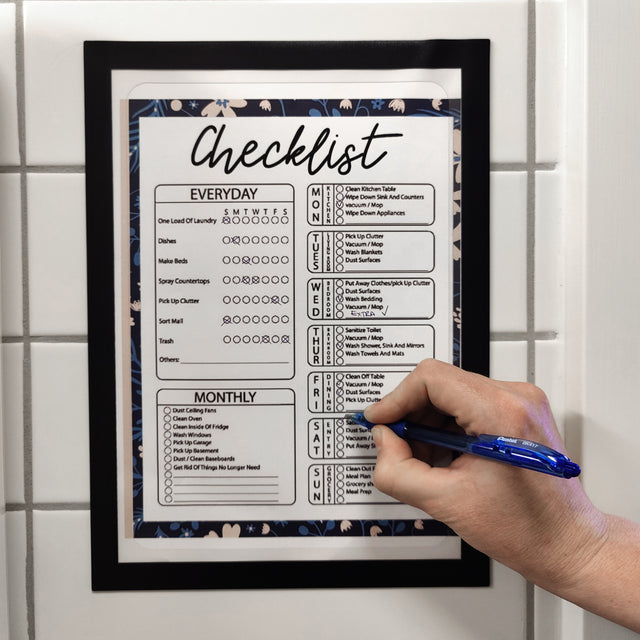 Checklist
EVERYDAY
S M T W T F S
One Load Of Laundry
Dishes
Make Beds
Spray Countertops
Pick Up Clutter
Sort Mail
Trash
Others:
MONTHLY
Dust Ceiling Fans
Clean Oven
Clean Inside Of Fridge
Wash Windows
Pick Up Garage
Pick Up Basement
Dust / Clean Baseboards
Get Rid Of Things No Longer Need
MON
KITCHEN
Clean Kitchen Table
Wipe Down Sink And Counters
vacuum / Mop
Wipe Down Appliances
TUES
LIVING ROOM
Pick Up Clutter
Vacuum / Mop
Wash Blankets
Dust Surfaces
WED
BEDROOM
Put Away Clothes/pick Up Clutter
Dust Surfaces
Wash Bedding
Vacuum / Mop
EXTRA ✓
THUR
BATHROOM
Sanitize Toilet
Vacuum / Mop
Wash Shower, Sink And Mirrors
Wash Towels And Mats
FRI
DINING
Clean Off Table
Vacuum / Mop
Dust Surfaces
Pick Up
SAT
ENTRY
Dust
Vacuum /
Put Away
SUN
GROCERY
Clean Out
Meal Plan
Grocery
Meal Prep
Pentel